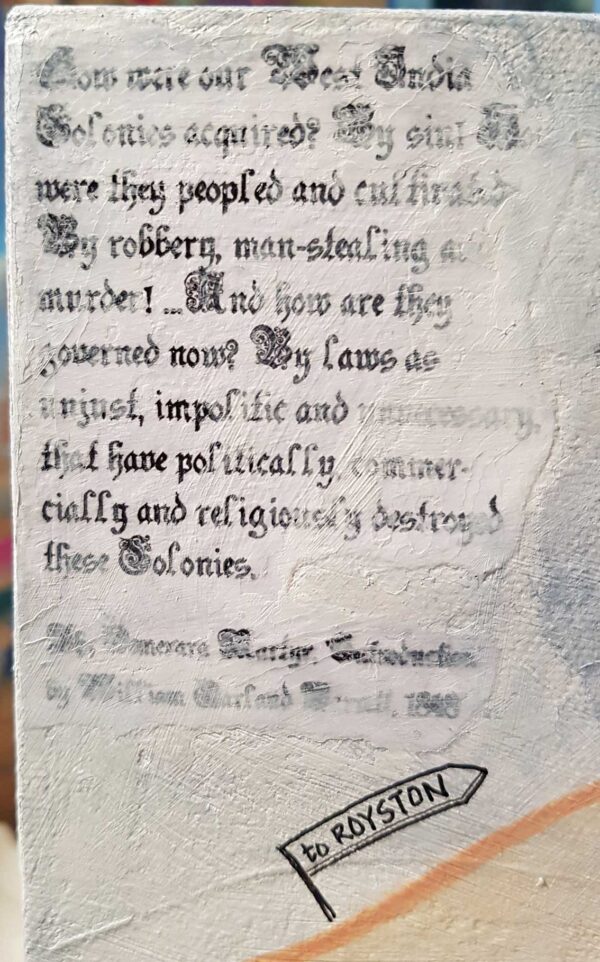 How were our West India
Colonies acquired? By sin! How
were they peopled and cultivated
By robbery, man-stealing a
murder! ...And how are they
governed now? By laws as
unjust, impolitic and unnecessary,
that have politically, commer-
cially and religiously destroyed
these Colonies.
Demerara Martyr. Introduction
by William Garland 1848
to ROYSTON